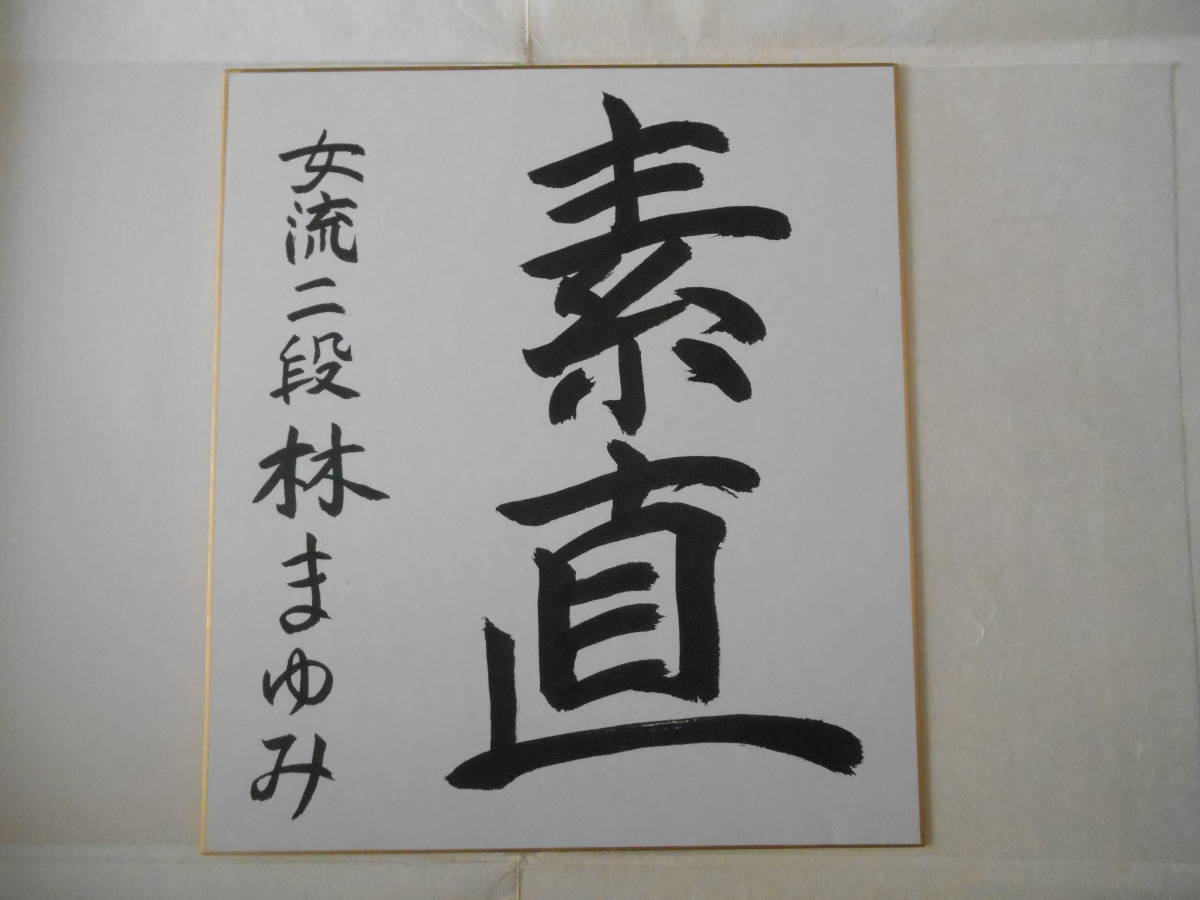 素直
女流二段 林まゆみ